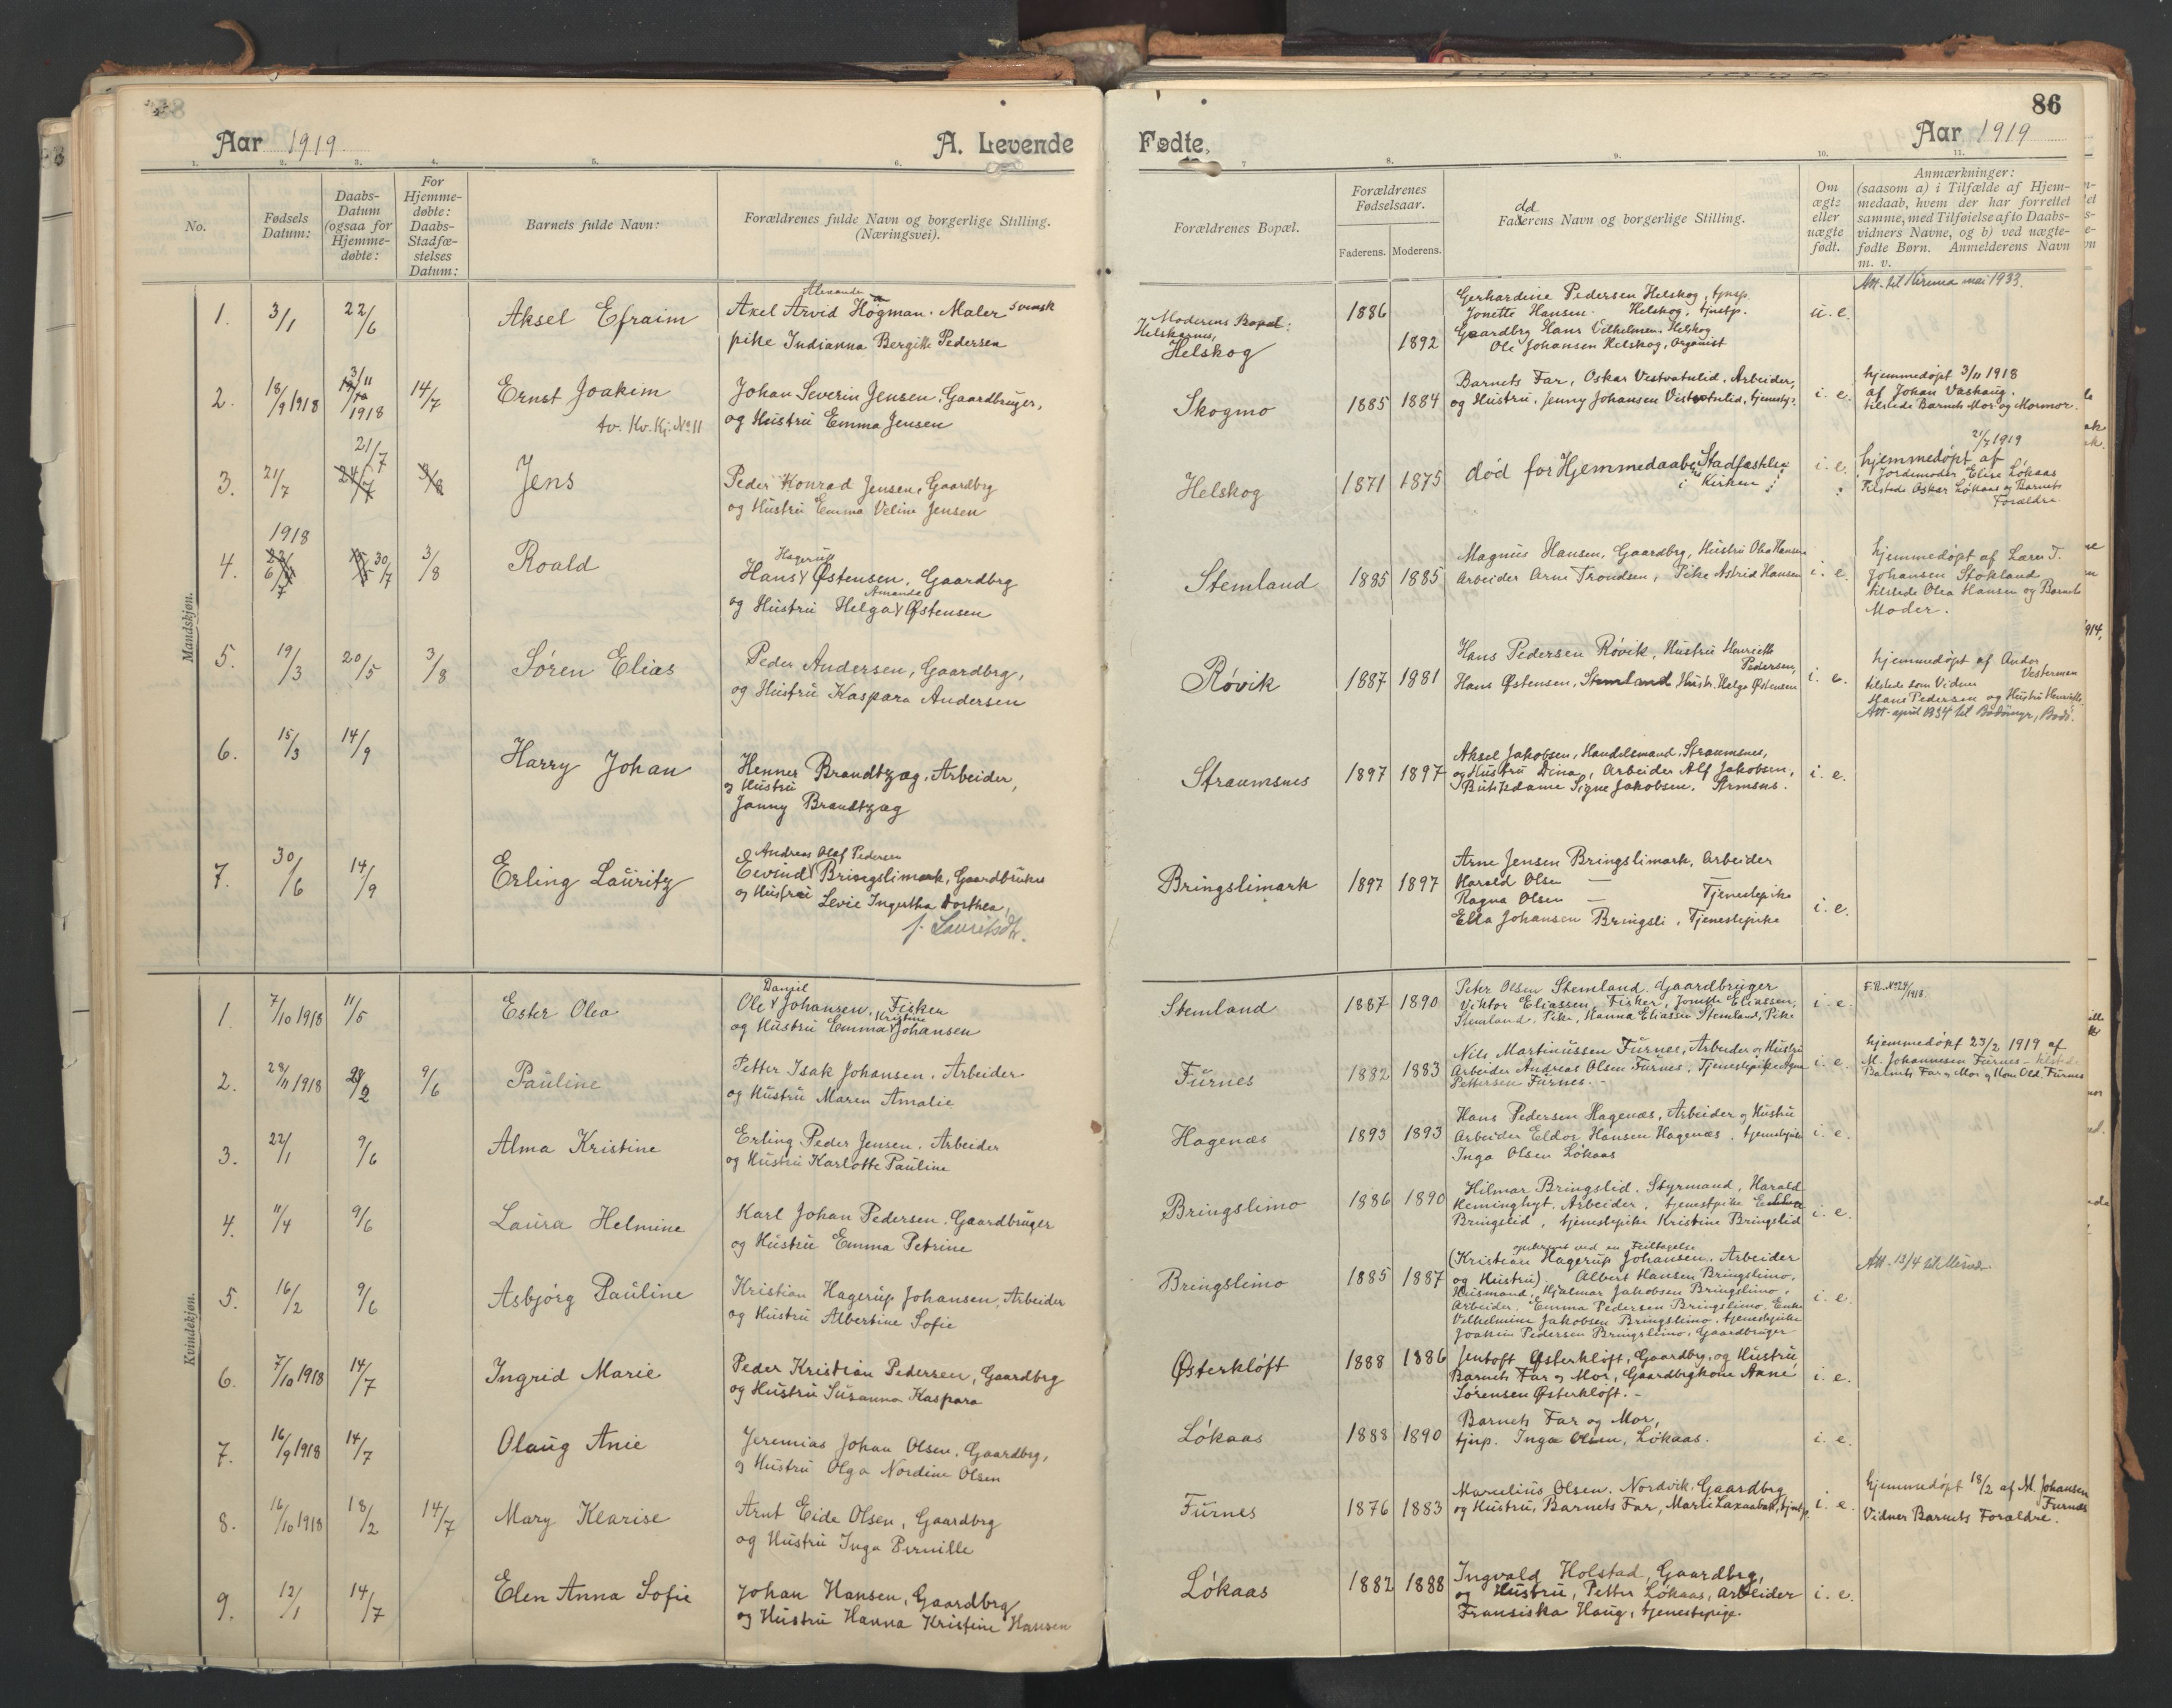 86
Aar 1919
A. Levende
Fødte,
Aar 1919
1. 2. 3. 4. 5. 6. 7 8. 9. 10. 11.
No.
Fødsels Datum:
Daabs-Datum (ogsaa for Hjemme-døbte:
For Hjemme-døbte: Daabs-Stadfæ-stelses Datum:
Barnets fulde Navn:
Forældrenes fulde Navn og borgerlige Stilling. (Næringsvei).
Forældrenes Bopæl.
Forældrenes Fødselsaar.
Faderens. Moderens.
Fadderens Navn og borgerlige Stilling.
Om ægte eller uægte født.
Anmærkninger: (saasom a) i Tilfælde af Hjem-medaab, hvem der har forrettet samme, med Tilføielse af to Daabs-vidners Navne, og b) ved uægte-fødte Børn. Anmelderens Navn m. v.
Mandskjøn.
1. 3/1 22/6 Aksel Efraim
Axel Arvid Høgman. Maler svensk
pike Indianna Bergitte Pedersen
Moderens Bopæl:
Helskognes,
Helskog
1886 1892
Gerhardine Pedersen Helskog, tjnsp.
Jonette Hansen Helskog, tjnstp.
Gaardbrg Hans Vilhelmsen Helskog
Ole Johansen Helskog, Organist
u. e.
Att. til Kiruna mai 1933.
2. 18/9 1918 3/11 1918 14/7 Ernst Joakim
tv. Kv. Kj. No 11
Johan Severin Jensen, Gaardbruger,
og Hustru Emma Jensen
Skogmo
1885 1884
Barnets Far, Oskar Vestvatnlid, Arbeider,
og Hustru, Jenny Johansen Vestvatnlid, tjenestp.
i. e.
hjemmedøpt 3/11 1918
af Johan Vashaug.
tilstede Barnets Mor og Mormor.
3. 21/7 21/7 Jens
Peder Konrad Jensen, Gaardbrg
og Hustru Emma Veline Jensen
Helskog
1871 1875
død før Hjemmedaabens Stadfæstelse
i Kirken
i. e.
21/7 1919
hjemmedøpt af
Jordemoder Elise Løkaas
tilstede Oskar Løkaas og Barnets
Forældre
4. 1918 30/7 3/8 Roald
Hagerup
Hans Østensen, Gaardbrg
Amanda
og Hustru Helga Østensen
Stemland
1885 1885
Magnus Hansen, Gaardbrg, Hustru Olea Hansen
Arbeider Arne Trondsen, Pike Astrid Hansen
i. e.
hjemmedøpt af Lars T.
Johansen Stokland
tilstede Olea Hansen og Barnets
Moder.
5. 19/3 20/5 3/8 Søren Elias
Peder Andersen, Gaardbrg,
og Hustru Kaspara Andersen
Røvik
1887 1881
Hans Pedersen Røvik, Hustru Henriette
Pedersen,
Hans Østensen, Stemland Hustr. Helga Østensen
i. e.
hjemmedøpt af Andor
Vesterman
tilstede som Vidner
Hans Pedersen og Hustru Henriette.
Att. april 1934 til Bodømyr, Bodø.
6. 15/3 14/9 Harry Johan
Henner Brandtzæg, Arbeider,
og Hustru
Janny Brandtzæg
Straumsnes
1897 1897
Aksel Jakobsen, Handelsmand, Straumsnes,
og Hustru Dina, Arbeider Alf Jakobsen,
Butiksdame Signe Jakobsen, Strmsns.
i. e.
7. 30/6 14/9 Erling Lauritz
Andreas Olaf Pedersen
Eivind Bringslimark, Gaardbruker
og Hustru Levie Ingertha Dorthea,
f. Lauritsdt.
Bringslimark
1897 1897
Arne Jensen Bringslimark, Arbeider
Harald Olsen —
Ragna Olsen — Tjenestepike
Ella Johansen Bringsli, Tjenestepike
i. e.
Kvindekjøn.
1. 7/10 1918 11/5 Ester Olea
Daniel
Ole Johansen, Fisker
Kristine
og Hustru Emma Johansen
Stemland
1887 1890
Peter Olsen Stemland. Gaardbruger
Viktor Eliassen, Fisker, Jonette Eliassen,
Stemland, Pike, Hanna Eliassen Stemland, Pike
i. e.
F.R. No 24/1918.
2. 29/11 1918 23/2 9/6 Pauline
Petter Isak Johansen. Arbeider
og Hustru Maren Amalie
Furnes
1882 1883
Nils Martinussen Furnes, Arbeider og Hustru
Arbeider Andreas Olsen Furnes, Tjenestepike Agne
Pettersen Furnes.
i. e.
hjemmedøpt 23/2 1919 af
M. Johannesen Furnes - tilstede
Barnets Far og Mor og Mons Old. Furnes
3. 22/1 9/6 Alma Kristine
Erling Peder Jensen. Arbeider
og Hustru Karlotte Pauline
Hagenæs
1893 1893
Hans Pedersen Hagenæs, Arbeider og Hustru
Arbeider Eldor Hansen Hagenæs, tjenestepike
Inga Olsen Løkaas
i. e.
4. 11/4 9/6 Laura Helmine
Karl Johan Pedersen. Gaardbruger
og Hustru Emma Petrine
Bringslimo
1886 1890
Hilmar Bringslid. Styrmand, Harald
Heminghyt. Arbeider, tjenestpike
Bringslid, tjenestepike Kristine Bringslid
i. e.
5. 16/2 9/6 Asbjørg Pauline
Kristian Hagerup Johansen, Arbeider
og Hustru Albertine Sofie
Bringslimo
1885 1887
opskrevet ved en Feiltagelse
(Kristian Hagerup Johansen. Arbeider
og Hustru). Albert Hansen Bringslimo,
Husmand, Hjalmar Jakobsen Bringslimo,
Arbeider. Emma Pedersen Bringslimo, Enke
Vilhelmine Jakobsen Bringslimo, tjenestepike
Joakim Pedersen Bringslimo, Gaardbruger
i. e.
6. 7/10 1918 14/7 Ingrid Marie
Peder Kristian Pedersen, Gaardbrg
og Hustru Susanna Kaspara
Østerkløft
1888 1886
Jentoft Østerkløft, Gaardbrg, og Hustru
Barnets Far og Mor, Gaardbrgkone Anne
Sørensen Østerkløft. -
i. e.
7. 16/9 1918 14/7 Olaug Anie
Jeremias Johan Olsen. Gaardbrg,
og Hustru Olga Nordine Olsen
Løkaas
1888 1890
Barnets Far og Mor,
tjnp. Inga Olsen, Løkaas.
i. e.
8. 16/10 1918 18/2 14/7 Mary Klarise
Arnt Eide Olsen, Gaardbrg
og Hustru Inga Pernille
Furnes
1876 1883
Marelius Olsen. Nordvik. Gaardbrg
og Hustru, Barnets Far, Marie Laxaabak, tjnstp.
i. e.
hjemmedøpt 18/2 af M. Johansen
Furnæs
Vidner Barnets Forældre.
9. 12/1 14/7 Elen Anna Sofie
Johan Hansen, Gaardbrg
og Hustru Hanna Kristine Hansen
Løkaas
1882 1888
Ingvald Holstad, Gaardbrg,
og Hustru, Petter Løkaas, Arbeider
Fransiska Haug, tjenestepige.
i. e.